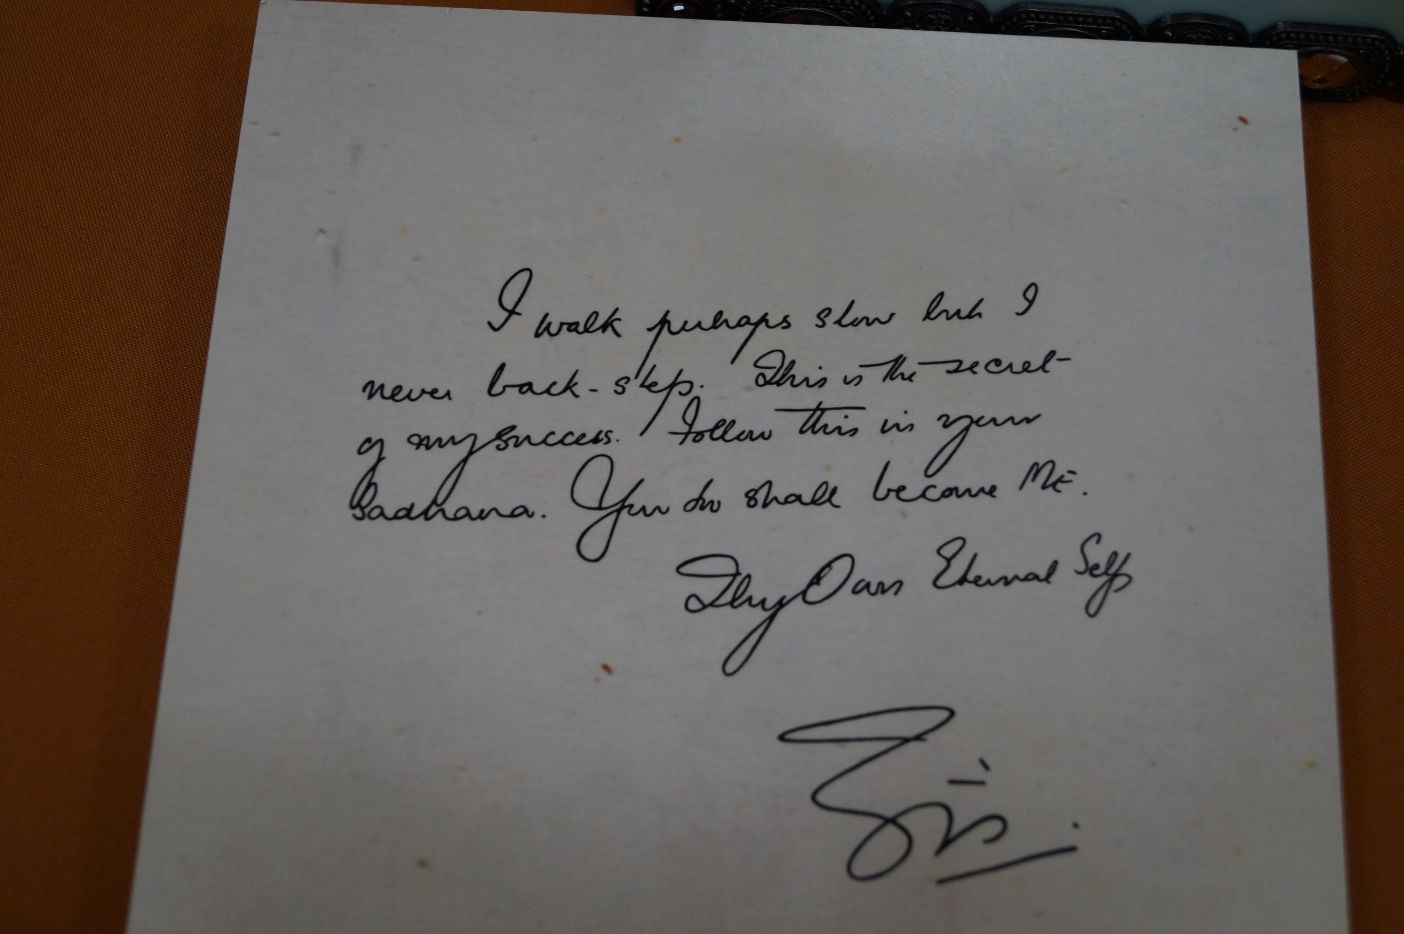 I walk perhaps slow but I
never back-step. This is the secret
of my success. Follow this in your
Sadhana. You too shall become ME.
Thy Own Eternal Self